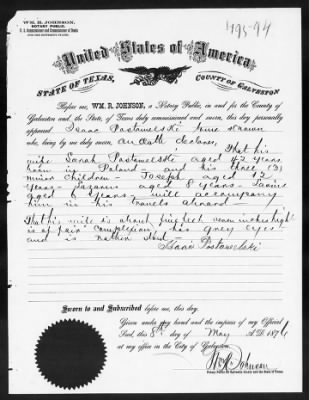 WM. R. JOHNSON,
NOTARY PUBLIC,
U. S. Commissioner and Commissioner of Deeds
1195-94
United States of America
STATE OF TEXAS, COUNTY OF GALVESTON
Before me, WM. R. JOHNSON, a Notary Public, in and for the County of
Galveston and the State of Texas duly commissioned and sworn, this day personally
appeared Isaac Postawelski
who, being by me duly sworn, on Oath declares,
That his
wife Sarah Postawelski aged 42 years
born in Poland and his three (3)
minor children Joseph aged 12
years - Lazarus aged 8 years - Louis
aged 6 years will accompany
him in his travels abroad
That his wife is about five feet inches high
is of fair complexion has grey eyes
and is rather stout
Isaac Postawelski
Sworn to and Subscribed before me, this day.
Given under my hand and the impress of my Official
Seal, this 8th day of May A.D. 1876
at my office in the City of Galveston.
Wm R Johnson
Notary Public for Galveston County and the State of Texas.